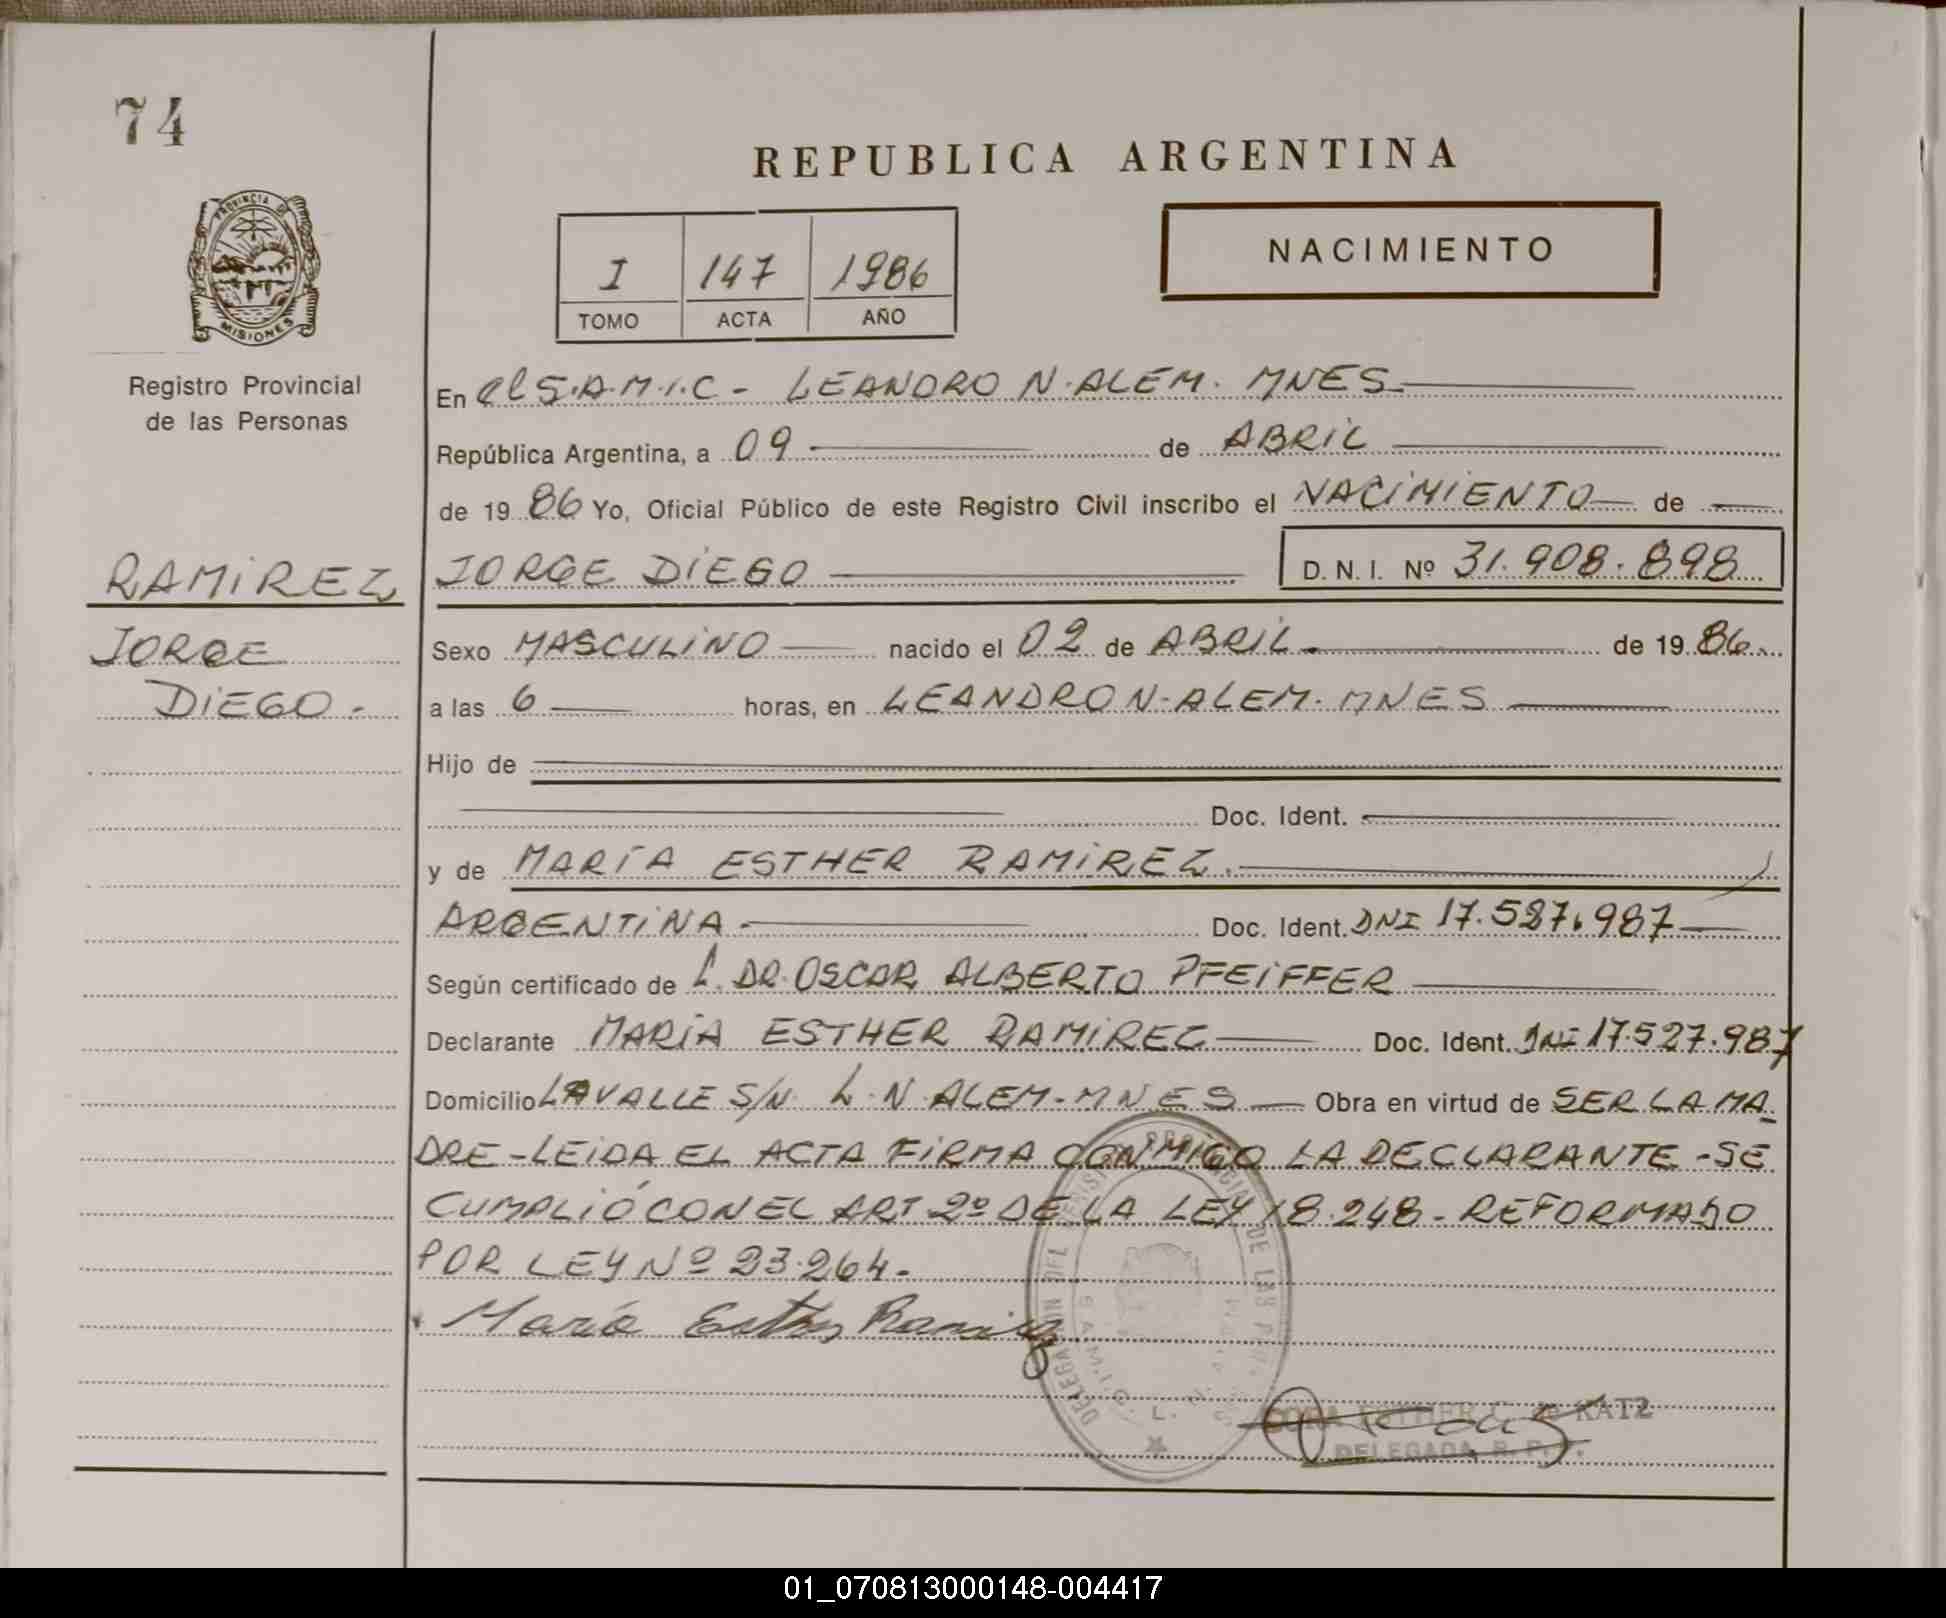 74
REPUBLICA ARGENTINA
PROVINCIA DE
MISIONES
Registro Provincial
de las Personas
I 147 1986
TOMO ACTA AÑO
NACIMIENTO
En el S.A.M.I.C - LEANDRO N. ALEM. MNES
República Argentina, a 09 de ABRIL
de 1986 Yo, Oficial Público de este Registro Civil inscribo el NACIMIENTO de
RAMIREZ
JORGE DIEGO D. N. I. Nº 31.908.898
JORGE
DIEGO.
Sexo MASCULINO nacido el 02 de ABRIL. de 1986.
a las 6 horas, en LEANDRO N. ALEM. MNES
Hijo de
Doc. Ident.
y de MARÍA ESTHER RAMIREZ.
ARGENTINA Doc. Ident. DNI 17.527.987
Según certificado de L. DR. OSCAR ALBERTO PFEIFFER
Declarante MARÍA ESTHER RAMIREZ Doc. Ident. DNI 17.527.987
Domicilio LAVALLE S/N. L. N. ALEM-MNES Obra en virtud de SER LA MA
DRE-LEIDA EL ACTA FIRMA CONMIGO LA DECLARANTE-SE
CUMPLIÓ CON EL ART 2º DE LA LEY 18.248- REFORMADO
POR LEY Nº 23.264.
María Esther Ramirez
ESTHER C. de KATZ
DELEGADA R. P. P.
01_070813000148-004417